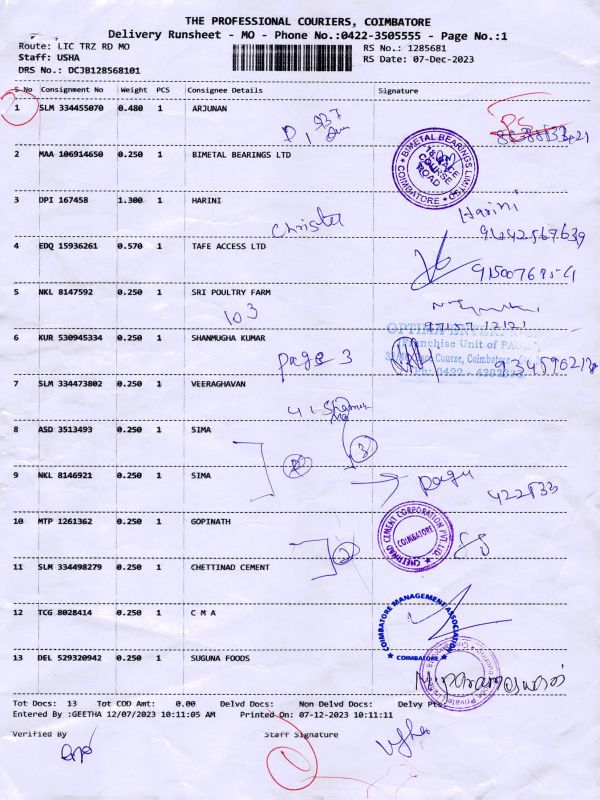 THE PROFESSIONAL COURIERS, COIMBATORE
Delivery Runsheet - MO - Phone No.:0422-3505555 - Page No.:1
Route: LIC TRZ RD MO RS No.: 1285681
Staff: USHA RS Date: 07-Dec-2023
DRS No.: DCJB128568101
S No Consignment No Weight PCS Consignee Details Signature
1 SLM 334455070 0.480 1 ARJUNAN
2 MAA 106914650 0.250 1 BIMETAL BEARINGS LTD
BIMETAL BEARINGS LIMITED
COIMBATORE
3 DPI 167458 1.300 1 HARINI
Harini
4 EDQ 15936261 0.570 1 TAFE ACCESS LTD
5 NKL 8147592 0.250 1 SRI POULTRY FARM
103
6 KUR 530945334 0.250 1 SHANMUGHA KUMAR
page 3
7 SLM 334473802 0.250 1 VEERAGHAVAN
8 ASD 3513493 0.250 1 SIMA
3
9 NKL 8146921 0.250 1 SIMA
10 MTP 1261362 0.250 1 GOPINATH
CHETTINAD CEMENT CORPORATION PVT. LTD.
COIMBATORE
2
11 SLM 334498279 0.250 1 CHETTINAD CEMENT
12 TCG 8028414 0.250 1 C M A
COIMBATORE MANAGEMENT ASSOCIATION
COIMBATORE
13 DEL 529320942 0.250 1 SUGUNA FOODS
Tot Docs: 13 Tot COD Amt: 0.00 Delvd Docs: Non Delvd Docs: Delvy Pts:
Entered By :GEETHA 12/07/2023 10:11:05 AM Printed On: 07-12-2023 10:11:11
Verified By Staff Signature